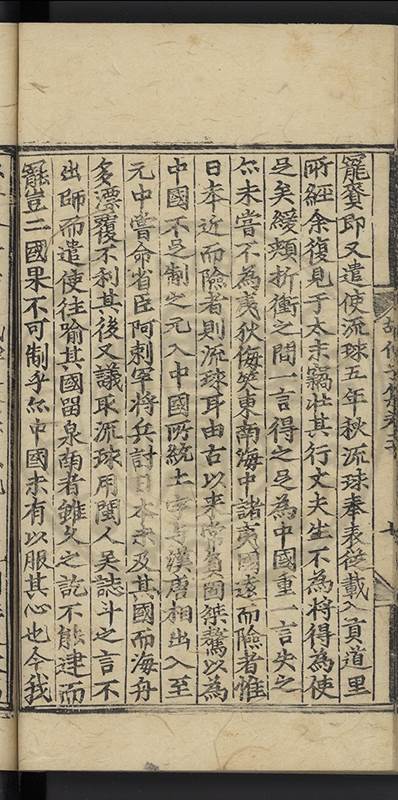 寵賚即又遣使流球五年秋流球奉表從載入貢道里
所經余復見于太末竊壯其行丈夫生不為將得為使
足矣緩頰折衝之間一言得之足為中國重一言失之
亦未嘗不為夷狄侮笑東南海中諸夷國遠而險者惟
日本近而險者則流球耳由古以來常負固桀驁以為
中國不足制之元入中國所統土宇與漢唐相出入至
元中嘗命省臣阿剌罕將兵討日本未及其國而海舟
多漂覆不利其後又議取流球用閩人吳誌斗之言不
出師而遣使往喻其國留泉南者雖久之訖不能逮而
罷豈二國果不可制乎亦中國未有以服其心也今我